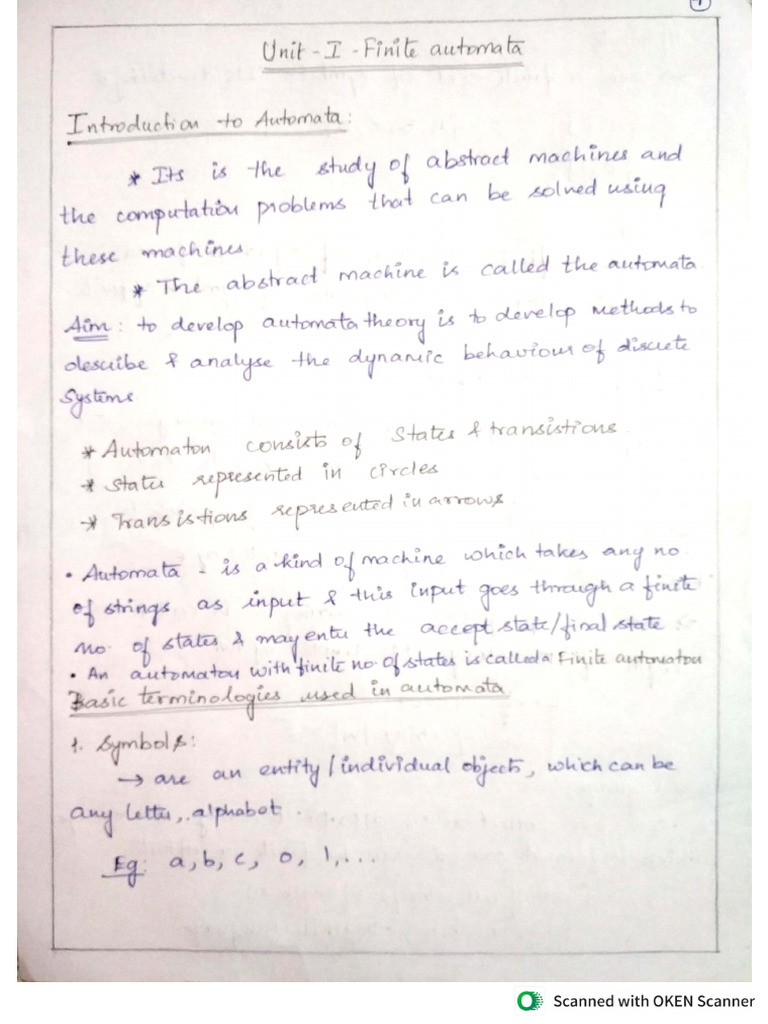 1
Unit - I - Finite automata
Introduction to Automata:
* Its is the study of abstract machines and
the computation problems that can be solved using
these machines
* The abstract machine is called the automata
Aim: to develop automata theory is to develop methods to
describe & analyse the dynamic behaviour of discrete
Systems
* Automaton consists of States & transistions
* States represented in circles
* Transistions represented in arrows
• Automata - is a kind of machine which takes any no
of strings as input & this input goes through a finite
no. of states & may enter the accept state/final state
• An automaton with finite no. of states is called a Finite automaton
Basic terminologies used in automata
1. Symbols:
→ are an entity / individual objects, which can be
any letter, alphabet.
Eg: a, b, c, 0, 1, ...
Scanned with OKEN Scanner